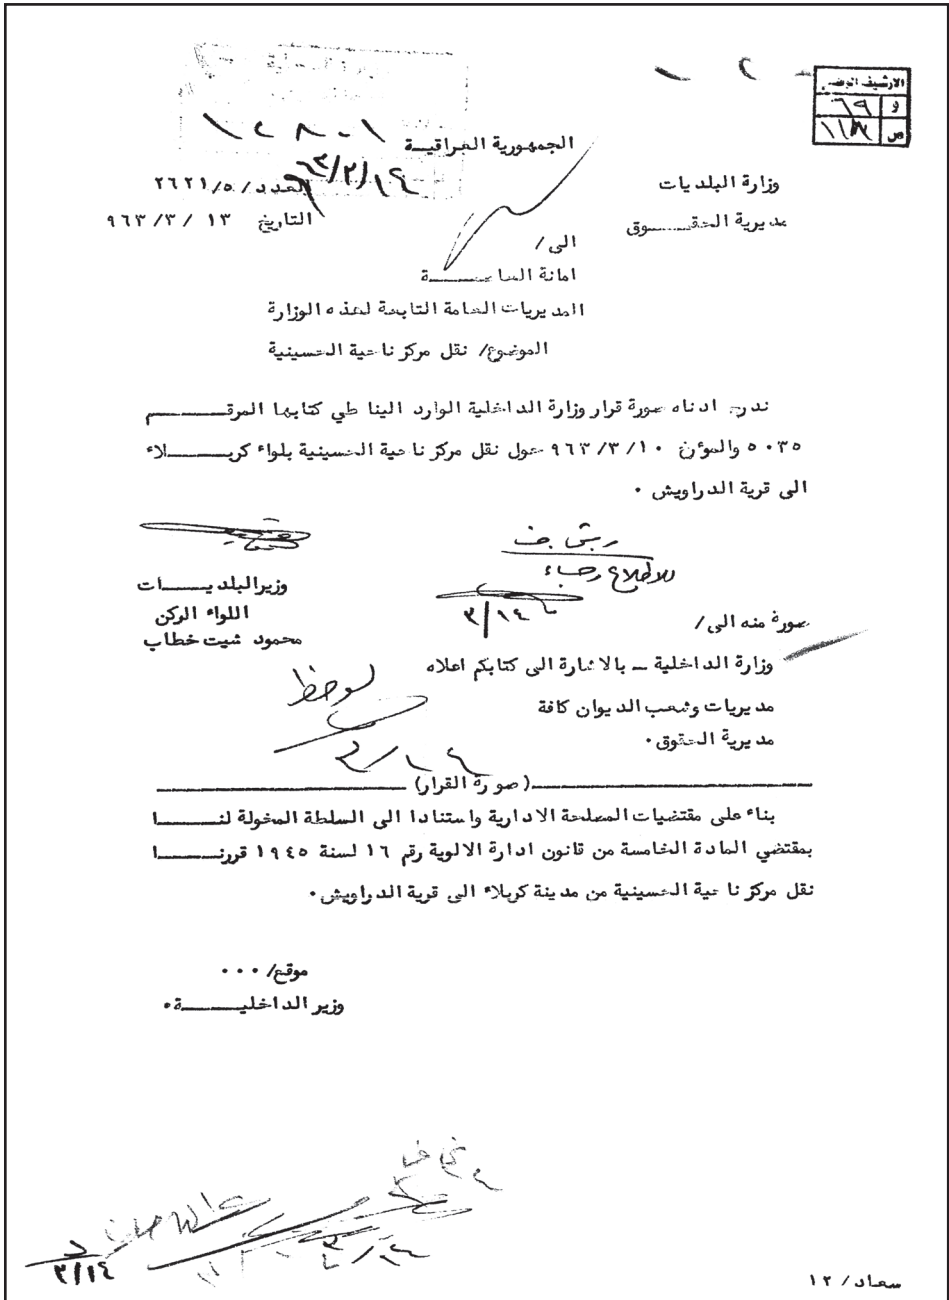 الارشيف الوطني
و ٦٩
ص
الجمهورية العراقيـة
٩٦٣/٣/١٤
وزارة البلديات
العدد/ ٥/ ٢٦٢١
مديرية الحقــــوق
التاريخ ١٣ /٣/ ٩٦٣
الى /
امانة العاصمـــــة
المديريات العامة التابعة لهذه الوزارة
الموضوع/ نقل مركز ناحية الحسينية
ندرج ادناه صورة قرار وزارة الداخلية الوارد الينا طي كتابها المرقـــــم
٥٠٣٥ والمؤرخ ١٠ /٣/ ٩٦٣ حول نقل مركز ناحية الحسينية بلواء كربـــــلاء
الى قرية الدراويش ٠
للاطلاع رجاء
٣/١٤
وزير البلديـــــات
اللواء الركن
محمود شيت خطاب
صورة منه الى/
وزارة الداخلية ــ بالاشارة الى كتابكم اعلاه
لوحظ
مديريات وشعب الديوان كافة
مديرية الحقوق٠
٣/١٤
(صورة القرار)
بناء على مقتضيات المصلحة الادارية واستنادا الى السلطة المخولة لنـــــا
بمقتضي المادة الخامسة من قانون ادارة الالوية رقم ١٦ لسنة ١٩٤٥ قررنـــــا
نقل مركز ناحية الحسينية من مدينة كربلاء الى قرية الدراويش٠
موقع/ ٠٠٠
وزير الداخليـــــة٠
٣/١٤
٣/١٤
سعاد/ ١٢